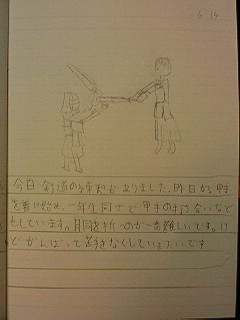 6 14
今日剣道の練習がありました。昨日から甲
を着け始め、一年生同士で甲手の打ち合いなど
もしています。胴を折つのが一番難しいです。け
どがんばって苦手なくしていきたいです